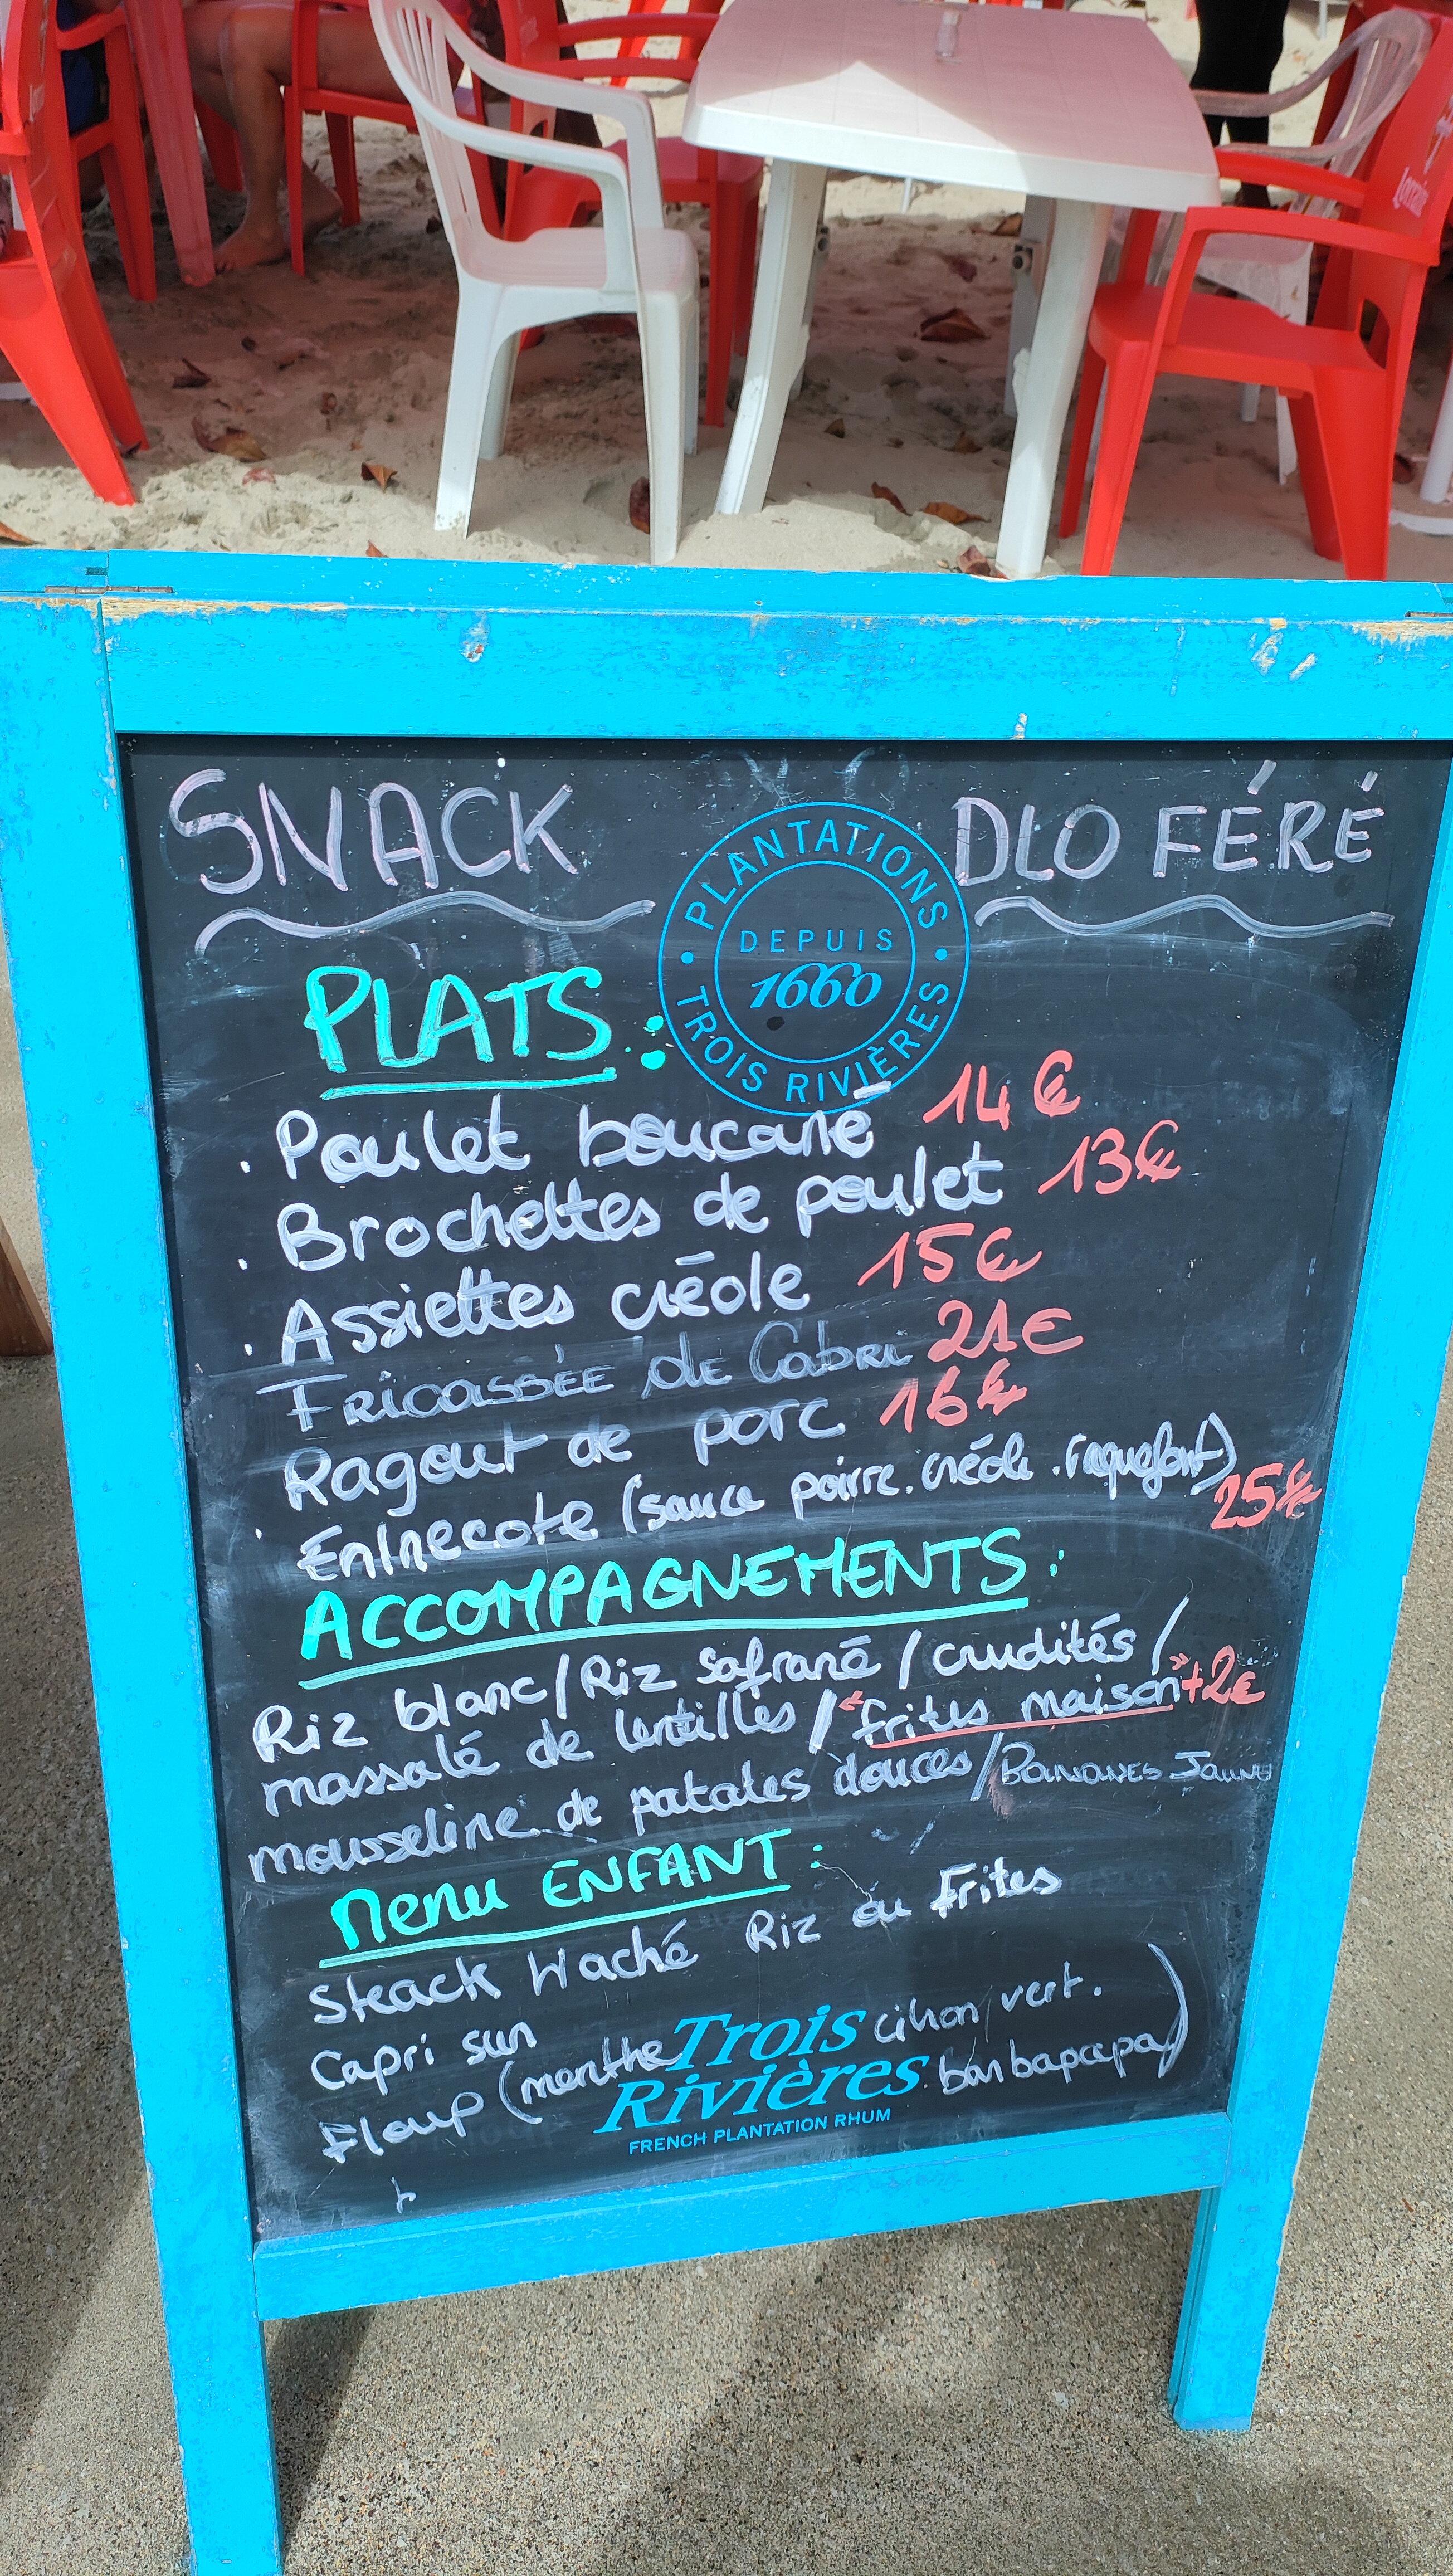 SNACK DLO FÉRÉ
PLANTATIONS
DEPUIS
1660
TROIS RIVIÈRES
PLATS :
. Poulet boucané 14€
. Brochettes de poulet 13€
. Assiettes créole 15€
FRICASSÉE de Cabri 21€
Ragout de porc 16€
. Entrecote (sauce poivre. créole. roquefort) 25€
ACCOMPAGNEMENTS :
Riz blanc/Riz safrané/crudités/
massalé de lentilles/"frites maison" +2€
mousseline de patates douces/BANANES JAUNES
Menu ENFANT :
Steack Haché Riz ou Frites
Capri sun
Floup (menthe citron vert. barbapapa)
Trois
Rivières
FRENCH PLANTATION RHUM
Lorraine